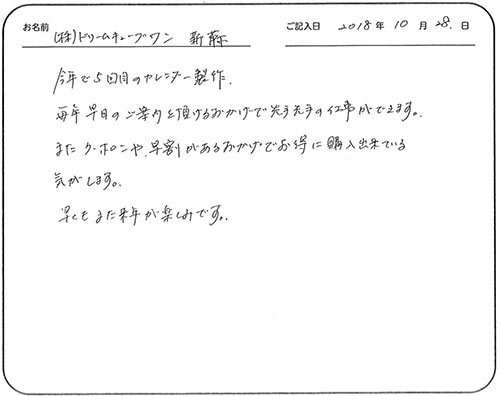 お名前 (株)ドリームチューブワン 新藤 ご記入日 2018年 10月 28.日
今年で5回目のカレンダー製作.
毎年早目のご案内を頂けるおかげで先手先手の仕事ができます。
またクーポンや、早割があるおかげでお得に購入出来ている
気がします。
早くもまた来年が楽しみです。